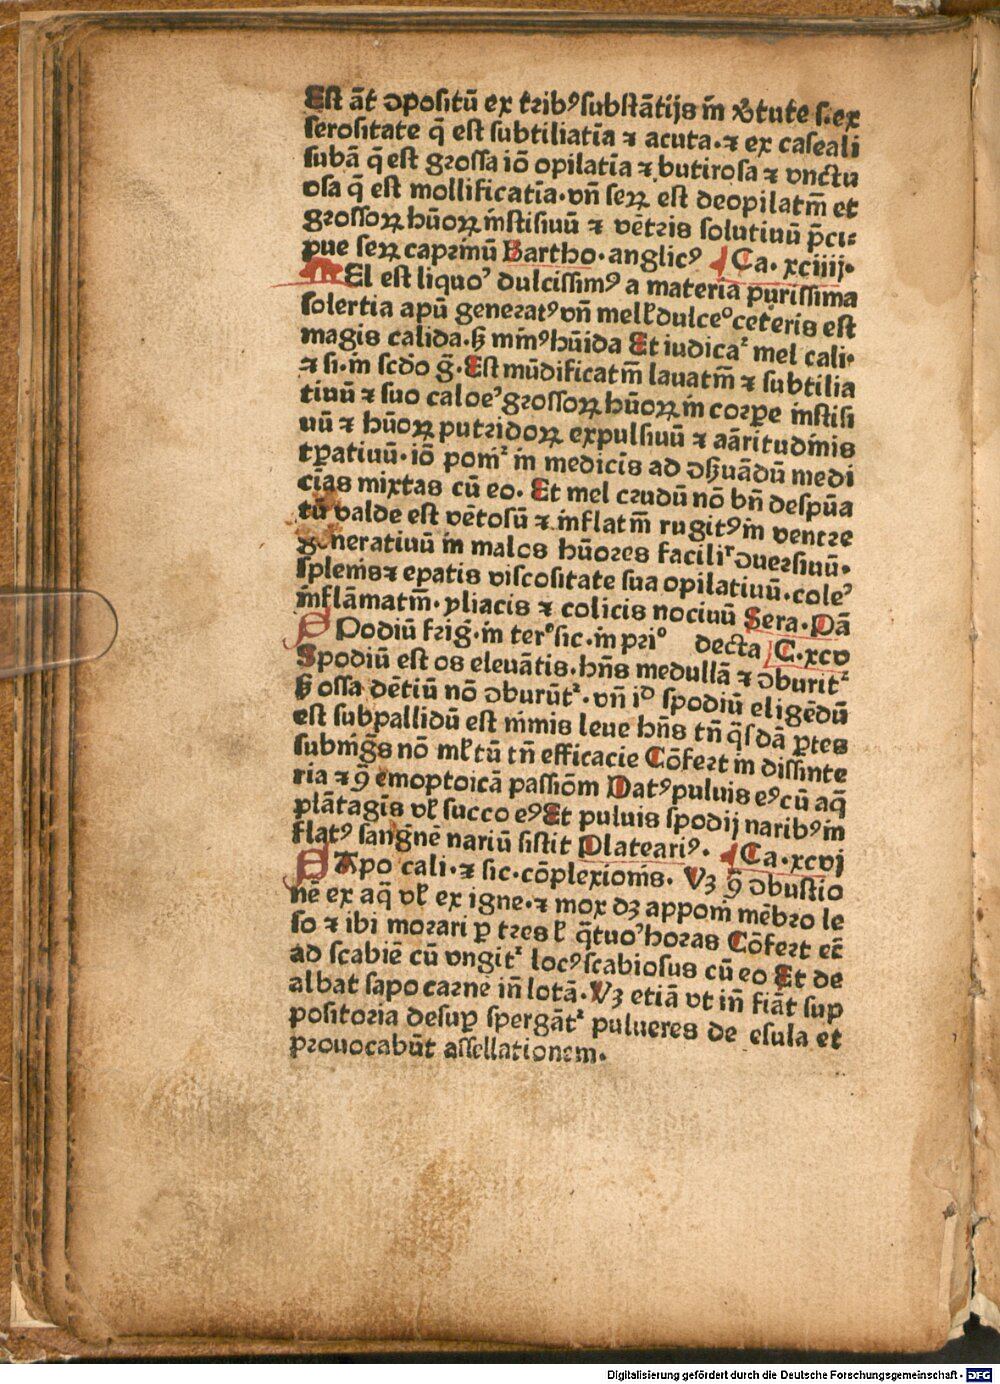 Est āt ꝯpositū ex tribꝰ substātijs in v̓tute s. ex
serositate q̄ est subtiliatīa ⁊ acuta. ⁊ ex caseali
subā q̄ est grossa iō opilatīa ⁊ butirosa ⁊ vnctu
osa q̄ est mollificatīa. vn̄ serꝝ est deopilatm̄ et
grossoꝝ hūoꝝ īnstisiuū ⁊ vētris solutiuū p̄ci⸗
pue serꝝ caprinū Bartho. anglicꝰ Ca. xciiij.
El est liquoꝰ dulcissimꝰ a materia purissima
solertia apū generatꝰ vn̄ mell̓ dulceᵒ ceteris est
magis calida. ꝫ mīnꝰ hūida Et iudicaᷣ mel cali.
⁊ si. in scdo g̈. Est mūdificatm̄ lauatm̄ ⁊ subtilia
tiuū ⁊ suo caloeꝰ grossoꝝ hūoꝝ in corpe instisi
uū ⁊ hūoꝝ putridoꝝ expulsiuū ⁊ aāritudinis
tꝑatiuū. iō pomᷣ in medicis ad ꝯẜuādū medi
cīas mixtas cū eo. Et mel crudū nō bn̄ despūa
tū valde est vētosū ⁊ inflatm̄ rugitꝰ in ventre
generatiuū in malos hūores faciliᷣ ꝯuersiuū.
splenis ⁊ epatis viscositate sua opilatiuū. coleꝰ
īnflāmatm̄. yliacis ⁊ colicis nociuū Sera. Pā
Podiū frig̓. in terᵒ sic. in priᵒ decta C. xcv
Spodiū est os elevātis. hn̄s medullā ⁊ ꝯburitᷣ
ẜ ossa dētiū nō ꝯburūtᷣ. vn̄ iᵈ spodiū eligēdū
est subpallidū est nimis leue hn̄s tn̄ q̄sdā ꝑtes
subnig̓s nō ml̓tū tn̄ efficacie Cōfert in dissinte
ria ⁊ ꝯ̄ emoptoicā passiōm Datꝰ puluis eꝰ cū aq̄
plātagis vl̓ succo eꝰ Et puluis spodij naribꝰ in
flatꝰ sangnē nariū sistit Plateariꝰ. Ca. xcvj
Apo cali. ⁊ sic. cōplexionis. Vꝫ ꝯ̄ ꝯbustio
nē ex aq̄ vl̓ ex igne. ⁊ mox dꝫ apponi mēbro le
so ⁊ ibi morari ꝑ tres l̓ q̄tuoꝰ horas Cōfert ec̄
ad scabiē cū vngitᷣ locꝰ scabiosus cū eo Et de
albat sapo carnē in̄ lotā. Vꝫ etiā vt in̄ fiāt sup
positoria desuꝑ spergātᷣ pulueres de esula et
prouocabūt assellationem.
Digitalisierung gefördert durch die Deutsche Forschungsgemeinschaft - DFG